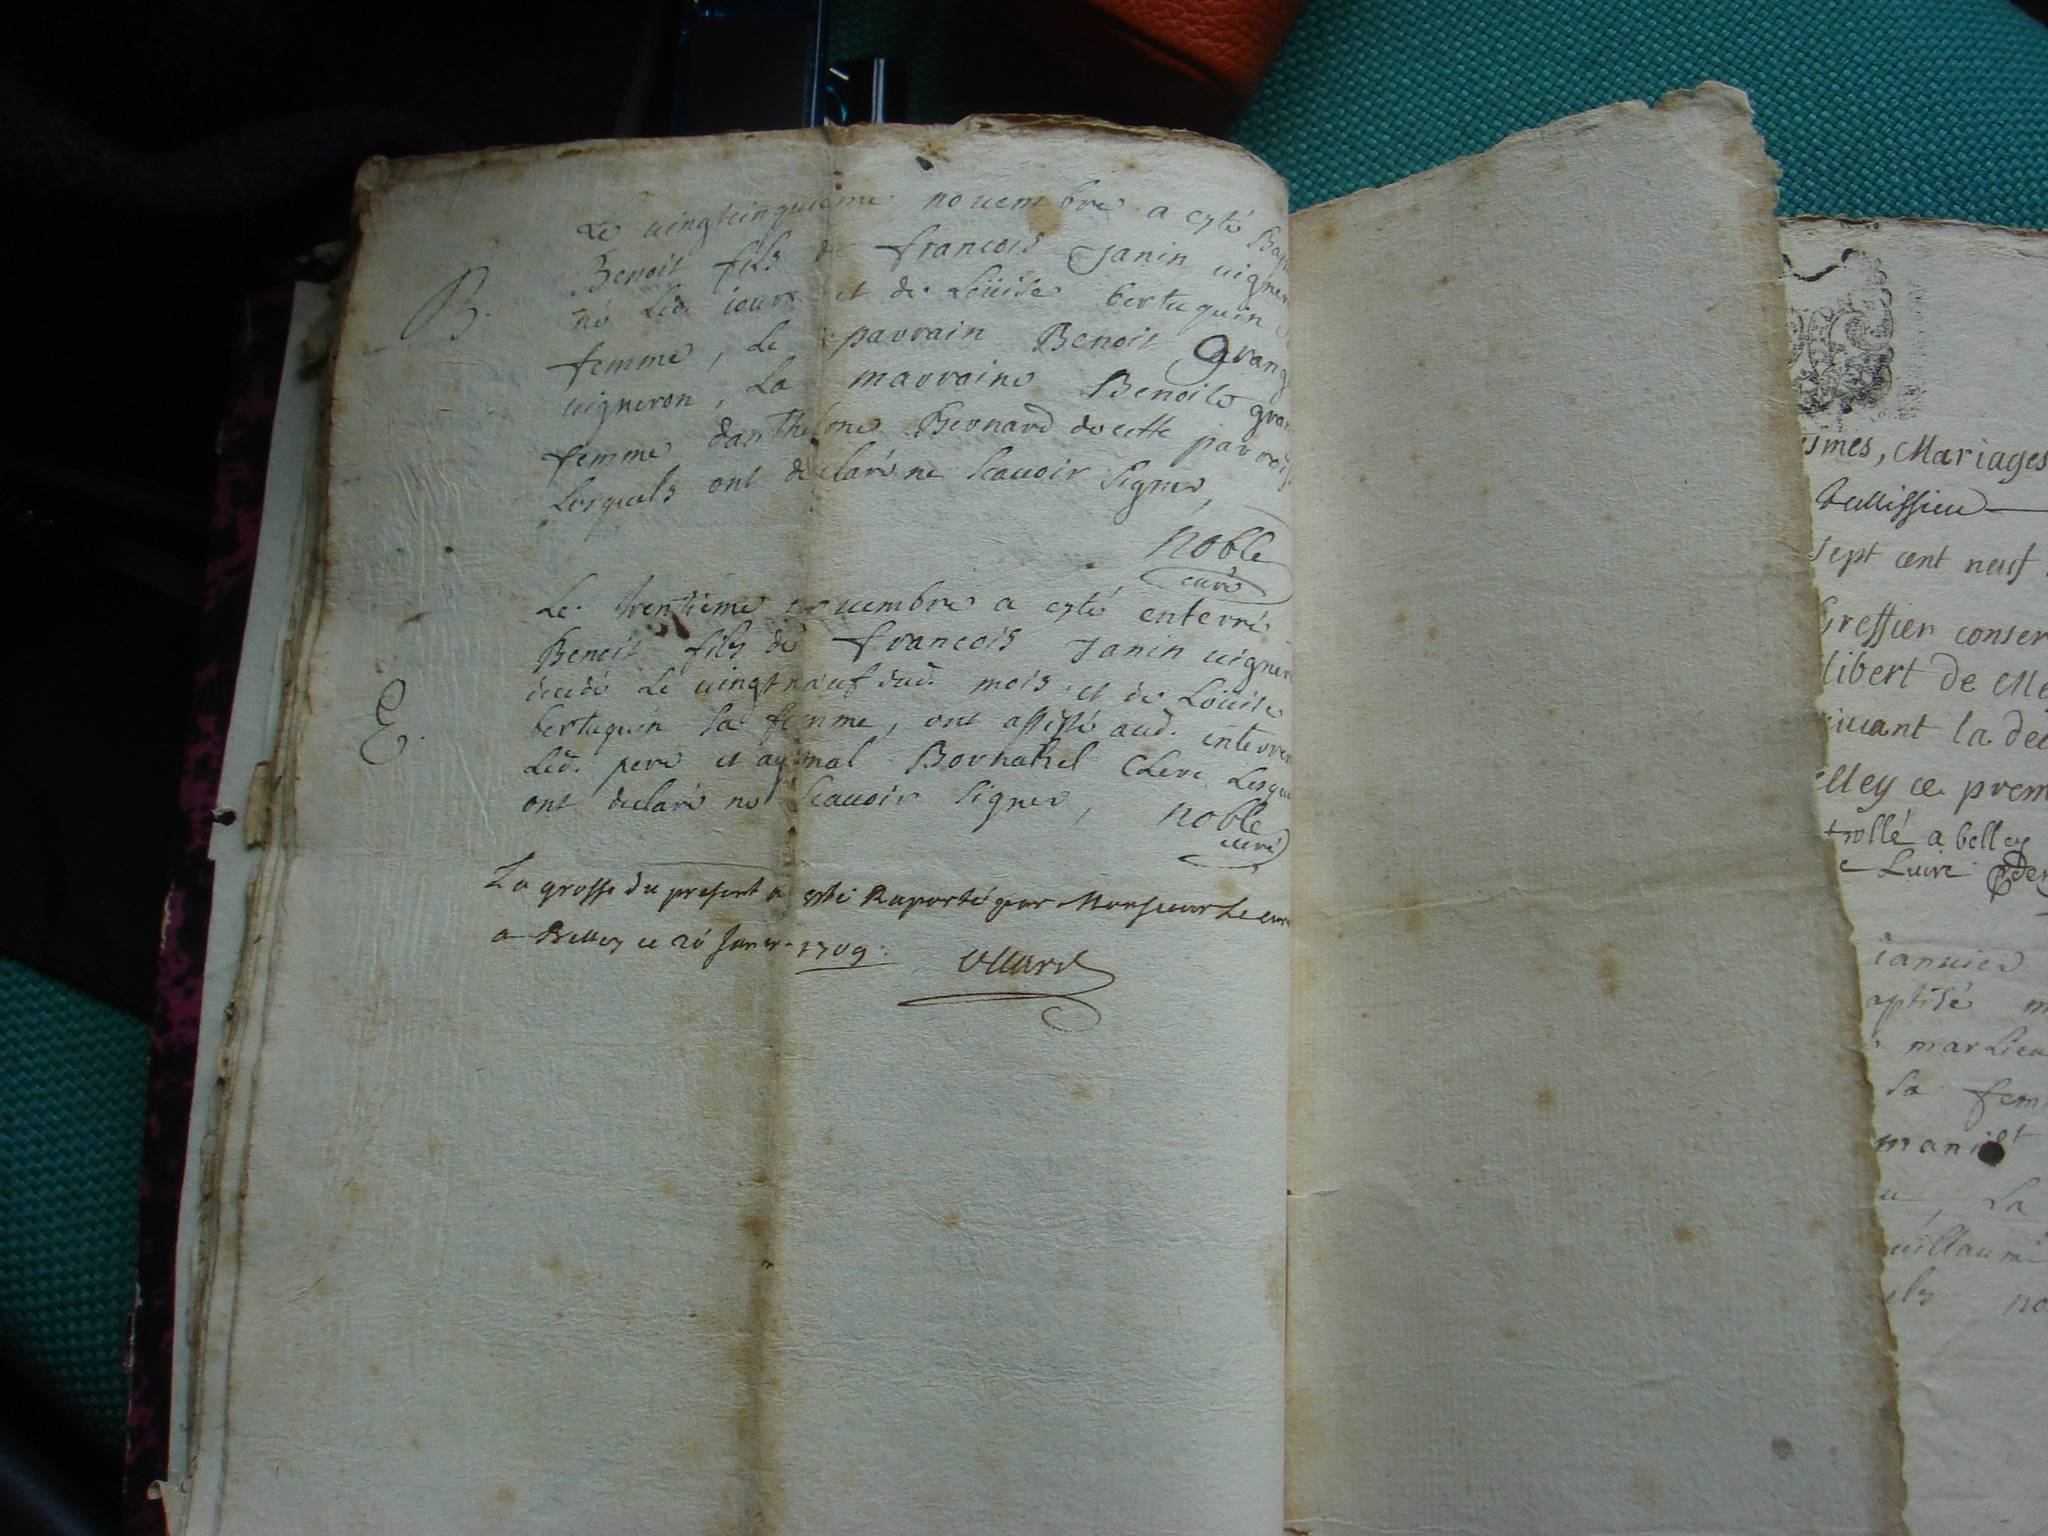 Le vingtcinquieme novembre a esté Bap
B.
Benoit fils de francois Janin vigner
né led. jour et de Loüise bertuquin
femme, Le parrain Benoit Grang
vigneron, La marraine Benoite gran
femme danthelme Bernard de cette parrois
Lesquels ont declaré ne scavoir signer,
noble
curé
Le trentieme novembre a esté enterré
Benoit fils de francois Janin vigner
E.
decedé Le vingt neuf dud. mois, et de Loüise
bertuquin sa femme, ont assisté aud. enterre
Led. pere et aymal Bornatel Clerc Lesque
ont declaré ne scavoir signer,
noble
curé
La grosse du present a esté Raporté par Monsieur Le curé
a Belley ce 20 Janer. 1709.
smes, Mariages
sept cent neuf
Greffier conser
libert de Me
uivant la dec
elley ce prem
trollé a belley
janvier
aptisé m
marlieu
sa fem
u, La
uillaume
els no